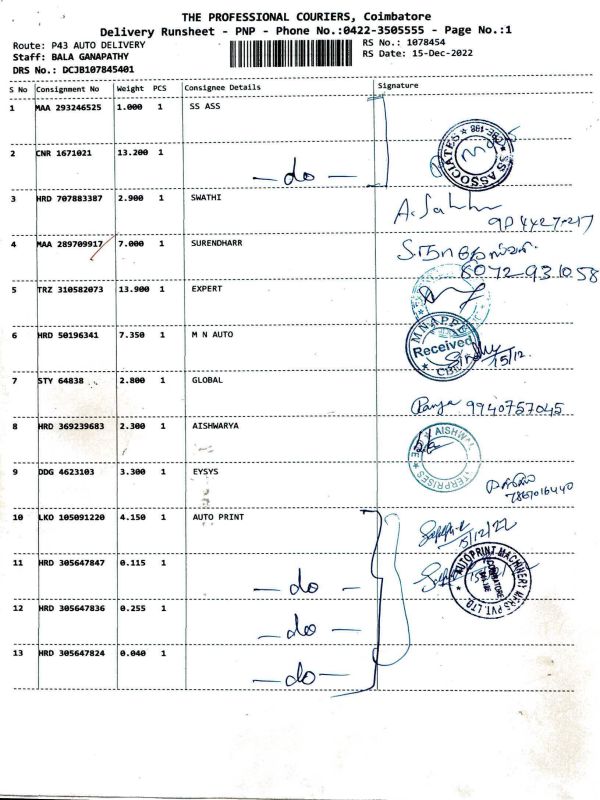 THE PROFESSIONAL COURIERS, Coimbatore
Delivery Runsheet - PNP - Phone No.:0422-3505555 - Page No.:1
Route: P43 AUTO DELIVERY
RS No.: 1078454
Staff: BALA GANAPATHY
RS Date: 15-Dec-2022
DRS No.: DCJB107845401
S No Consignment No Weight PCS Consignee Details Signature
1 MAA 293246525 1.000 1 SS ASS
SS ASSOCIATES
2 CNR 1671021 13.200 1
— do —
3 HRD 707883387 2.900 1 SWATHI
4 MAA 289709917 7.000 1 SURENDHARR
8072 931058
5 TRZ 310582073 13.900 1 EXPERT
6 HRD 50196341 7.350 1 M N AUTO
Received
15/12.
7 STY 64838 2.800 1 GLOBAL
9940757045
8 HRD 369239683 2.300 1 AISHWARYA
9 DDG 4623103 3.300 1 EYSYS
10 LKO 105091220 4.150 1 AUTO PRINT
15/12/22
11 HRD 305647847 0.115 1
— do —
AUTOPRINT MACHINERY MFRS PVT. LTD.
COIMBATORE
12 HRD 305647836 0.255 1
— do —
13 HRD 305647824 0.040 1
— do —